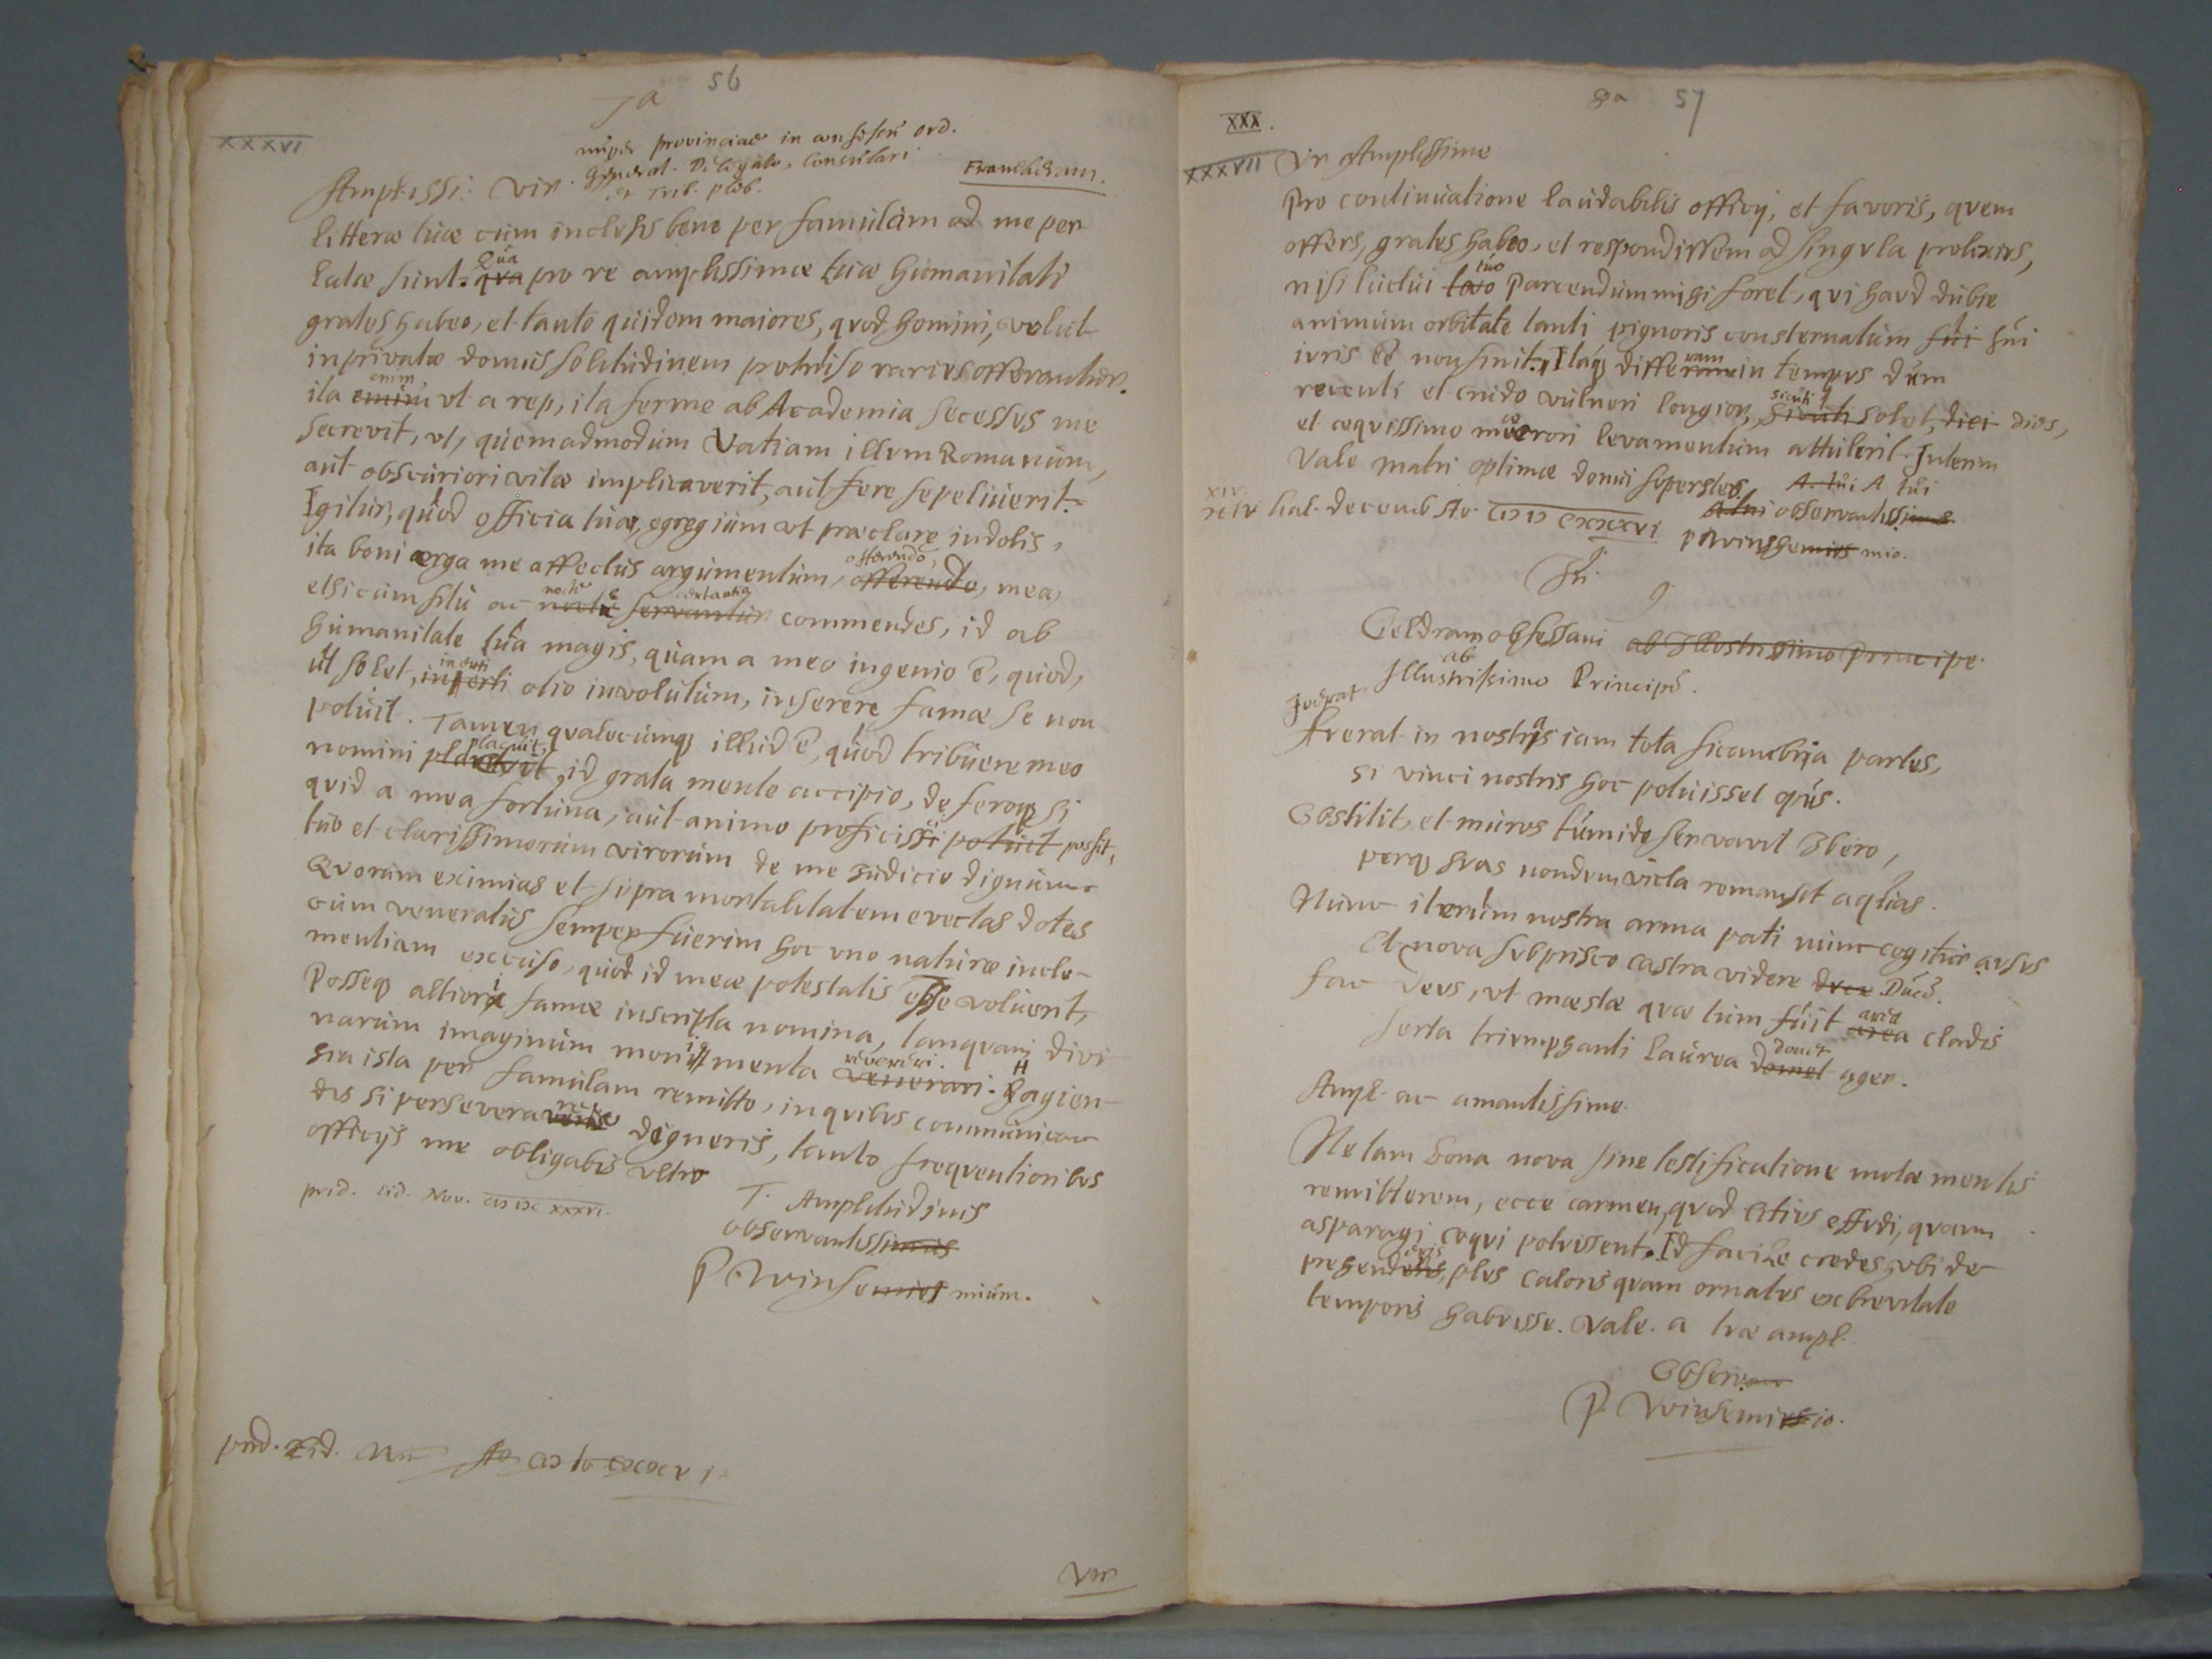 7a 56
XXXVI
nuper provinciae in consessu ord.
General. Delegato, Consulari
et Trib. pleb.
Franekeram.
Ampl:issi: Vir.
litteræ tuæ cum inclusis bene per famulam ad me per
latæ sunt. Qua qva pro re amplissimæ tuæ humanitati
grates habeo, et tanto quidem maiores, qvod homini, velut
in privatæ domus solitudinem protruso rarius offerantur.
ita enim enim ut a rep, ita ferme ab Academia secessus me
secrevit, ut, quemadmodum Vatiam illum Romanum,
aut obscuriori vitæ implicaverit, aut fere sepeliverit.
Igitur, quod officia tua, egregium ut præclare indolis,
ita boni erga me affectus argumentum, offerendo, offerendo, mea,
etsi cum situ ac commendes, id ab
humanitate tua magis, quam a meo ingenio e, quod,
ut solet, inerti otio involutum, inserere famæ se non
potuit. Tamen qvalecumq illud e, quod tribuere meo
nomini placuit, id grata mente accipio, deferoq si
qvid a mea fortuna, aut animo proficissi potuit possit,
tuo et clarissimorum virorum de me iudicio dignum.
Qvorum eximias et supra mortalitatem evectas dotes
cum veneratus semper fuerim hoc uno naturæ incle-
mentiam excuso, quod id meæ potestatis esse voluerit,
posseq altiori famæ inscripta nomina, tanquam divi
narum imaginum monimenta revereri. venerari. Hagien-
sia ista per famulam remitto, inqvibus communican-
dis si perseverare digneris, tanto freqventioribus
officijs me obligabis ultro
prid. eid. Nov. CIƆ IƆC XXXVI.
T. Amplitudinis
observantissimus
P. Winsemius mium.
prid. Eid.
Vir
8a 57
XXX.
XXXVII Vir Amplissime
Pro continuatione laudabilis officij, et favoris, qvem
offers, grates habeo, et respondissem ad singula prolixius,
nisi luctui tuo tuo parcendum mihi foret, qvi haud dubie
animum orbitate tanti pignoris consternatum sui sui
iuris ee non sinit. Itaq differam in tempus dum
recenti et crudo vulneri longior, sicuti sicuti solet, diei dies,
et æqvissimo mœrori levamentum attulerit. Interim
Vale matri optimæ domui superstes. A. tui A tui
XIV. kal. decemb. observantissimus
P. Winshemius mio.
9.
Geldram obsessam ab Illustrissimo Principe.
ab
Illustrissimo Principe.
Iverat
Iverat in nostras iam tota sicambria partes,
si vinci nostris hoc potuisset opus.
Obstitit, et muros tumido servavit Ibero,
perq suas nondum victa remansit aquas.
Nunc iterum nostra arma pati nunc cogitur ausus
Et nova sub prisco castra videre duce Duce.
Fac Deus, ut mæstæ quæ tum fuit area area cladis
serta triumphanti laurea donet donet ager.
Ampl. ac amantissime.
Ne tam bona nova sine testificatione motæ mentis
remitterem, ecce carmen, quod citius effudi, qvam
asparagi coqvi potuissent. Id facile credes, ubi de
prehenderis, plus caloris qvam ornatus ex brevitate
temporis habuisse. Vale. a tuæ ampl.
Observan
P. Winsemius io.